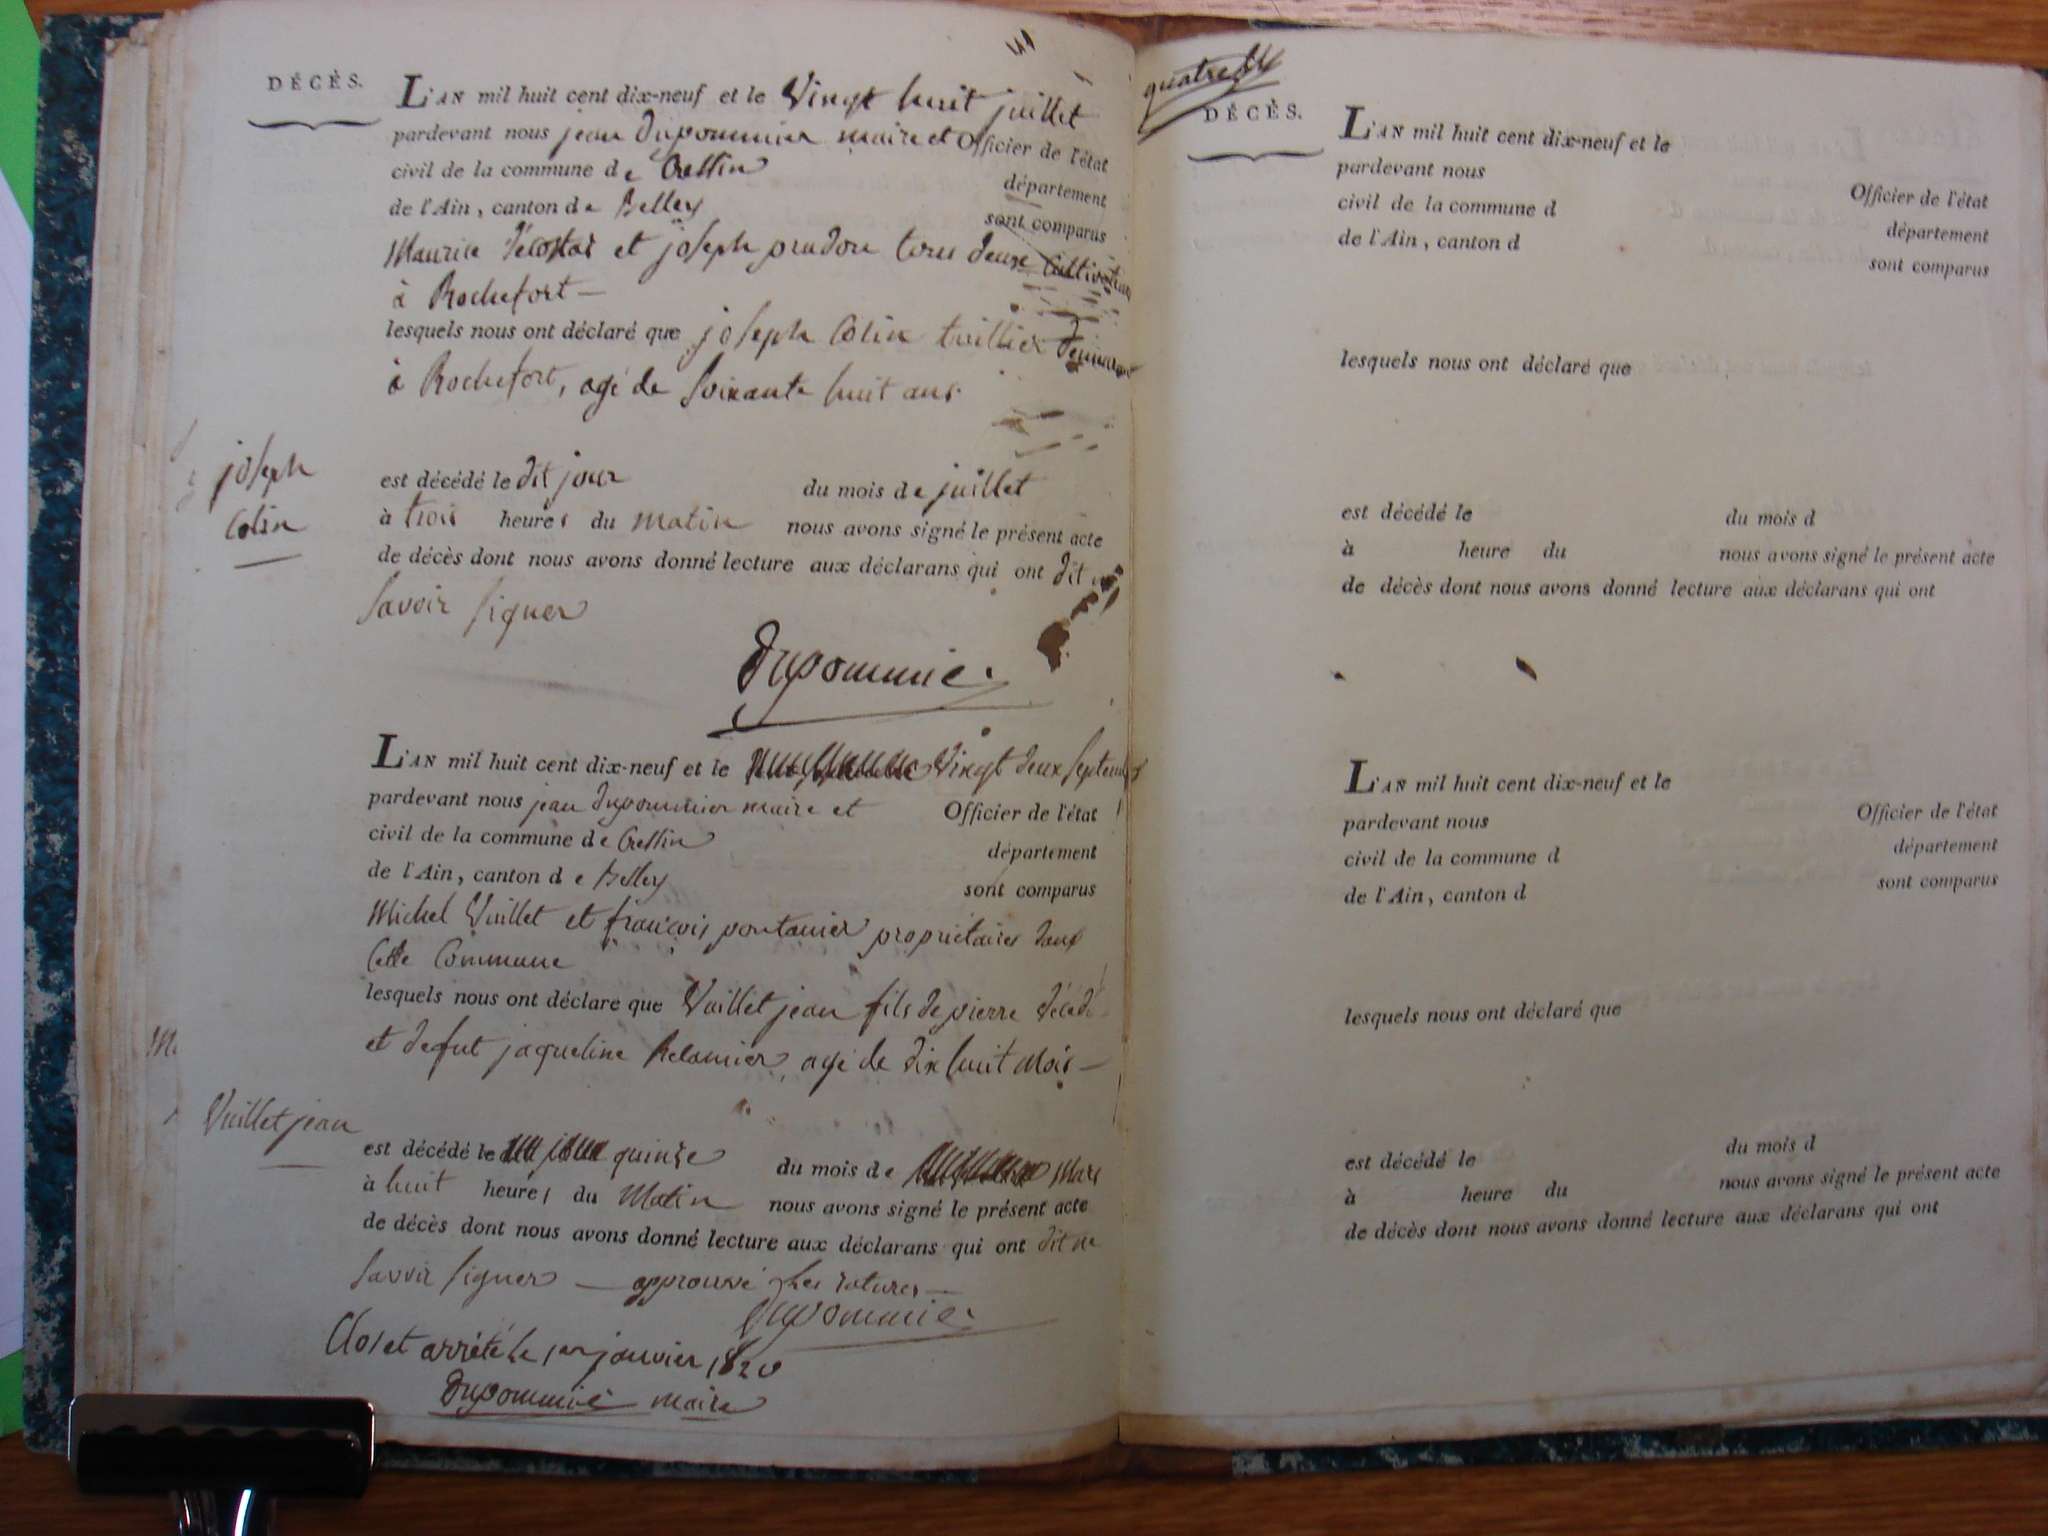 DÉCÈS.
L'AN mil huit cent dix-neuf et le Vingt huit juillet
pardevant nous jean dupommier maire et Officier de l'état
civil de la commune de Cressin
département
de l'Ain, canton de Belley
sont comparus
Maurice et joseph tous deux Cultivateurs
à Rochefort —
lesquels nous ont déclaré que joseph Colin tuillier demeurant
à Rochefort, agé de soixante huit ans.
joseph
Colin
est décédé le dit jour du mois de juillet
à trois heures du matin nous avons signé le présent acte
de décès dont nous avons donné lecture aux déclarans qui ont dit
savoir signer
dupommié.
L'AN mil huit cent dix-neuf et le Vingt deux septemb
pardevant nous jean dupommier maire et Officier de l'état
civil de la commune de Cressin
département
de l'Ain, canton de Belley
sont comparus
Michel Vuillet et françois pontanier propriétaires dans
Cette Commune
lesquels nous ont déclaré que Vuillet jean fils de pierre décédé
et defut jaqueline agé de dix huit Mois —
Vuillet jean
est décédé le quinze du mois de Mars
à huit heures du Matin nous avons signé le présent acte
de décès dont nous avons donné lecture aux déclarans qui ont dit ne
savoir signer — approuvé les ratures —
dupommié.
Clos et arrêté le 1er janvier 1820
dupommié maire
quatre
DÉCÈS.
L'AN mil huit cent dix-neuf et le
pardevant nous
Officier de l'état
civil de la commune d
département
de l'Ain, canton d
sont comparus
lesquels nous ont déclaré que
est décédé le du mois d
à heure du nous avons signé le présent acte
de décès dont nous avons donné lecture aux déclarans qui ont
L'AN mil huit cent dix-neuf et le
pardevant nous Officier de l'état
civil de la commune d département
de l'Ain, canton d sont comparus
lesquels nous ont déclaré que
est décédé le du mois d
à heure du nous avons signé le présent acte
de décès dont nous avons donné lecture aux déclarans qui ont